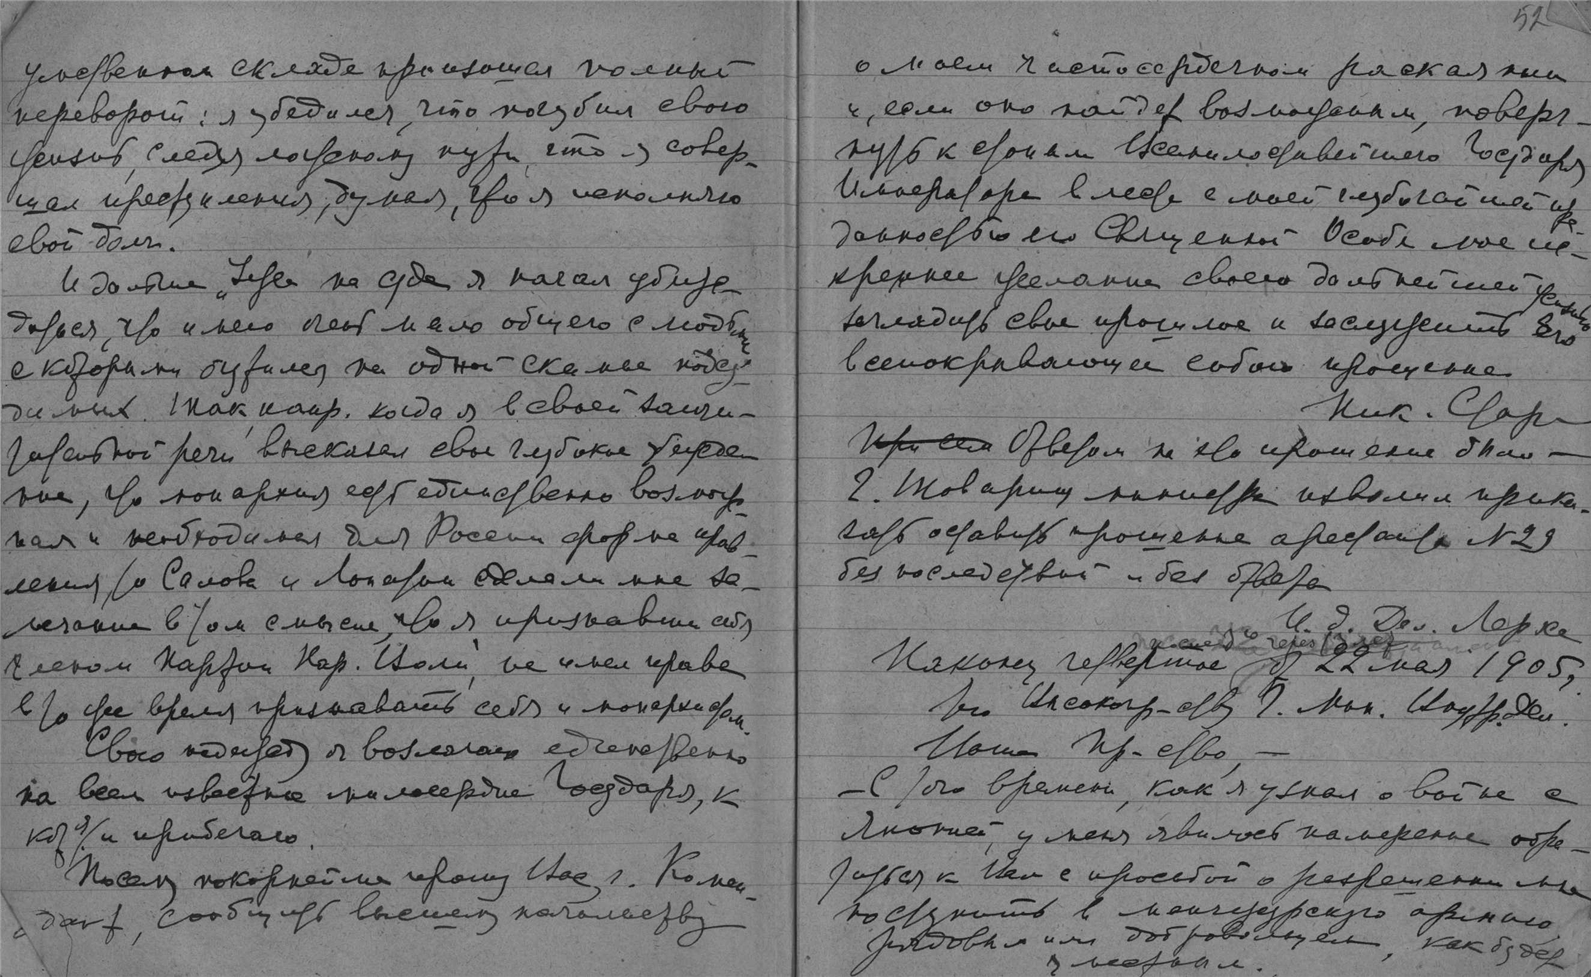 умственном складе произошел полный
переворот: я убедился, что погубил свою
жизнь, следуя ложному пути, что я совер-
шал преступления, думая, что я исполняю
свой долг.
И дальше „Уже на суде я начал убеж-
даться, что имею очень мало общего с людьми
с которыми очутился на одной скамье подсу-
димых. Так, напр. когда я в своей заклю-
чительной речи высказал свое глубокое убежде-
ние, что монархия есть единственно возмож-
ная и необходимая для России форма прав-
ления, то Салова и Лопатин сделали мне за-
мечание в том смысле, что я признавши себя
членом партии Нар. Воли, не имел права
в то же время признавать себя и монархистом.
Свою надежду я возлагаю единственно
на всем известное милосердие Государя, к
кот. и прибегаю.
Посему покорнейше прошу Вас, г. Комен-
дант, сообщить высшему начальству
52
о моем чистосердечном раскаянии
и, если оно найдет возможным, поверг-
нуть к стопам Всемилостивейшего Государя
Императора вместе с моей глубочайшей пре-
данностью его Священной Особе мое ис-
креннее желание своею дальнейшей жизнью
загладить свое прошлое и заслужить Его
всепокрывающее собою прощение.
Ник. Стар
При сем Ответом на это прошение было —
Г. Товарищ министра изволил прика-
зать оставить прошение арестанта № 29
без последствий и без ответа
И. д. Дел. Лерхе
Наконец четвертое от 22 мая 1905 г.
Его Высокопр-ству Г. Мин. Внутр. Дел.
Ваше Пр-ство, —
— С того времени, как я узнал о войне с
Японией, у меня явилось намерение обра-
титься к Вам с просьбой о разрешении мне
поступить в манчжурскую армию
рядовым или добровольцем, как будет
уместным.